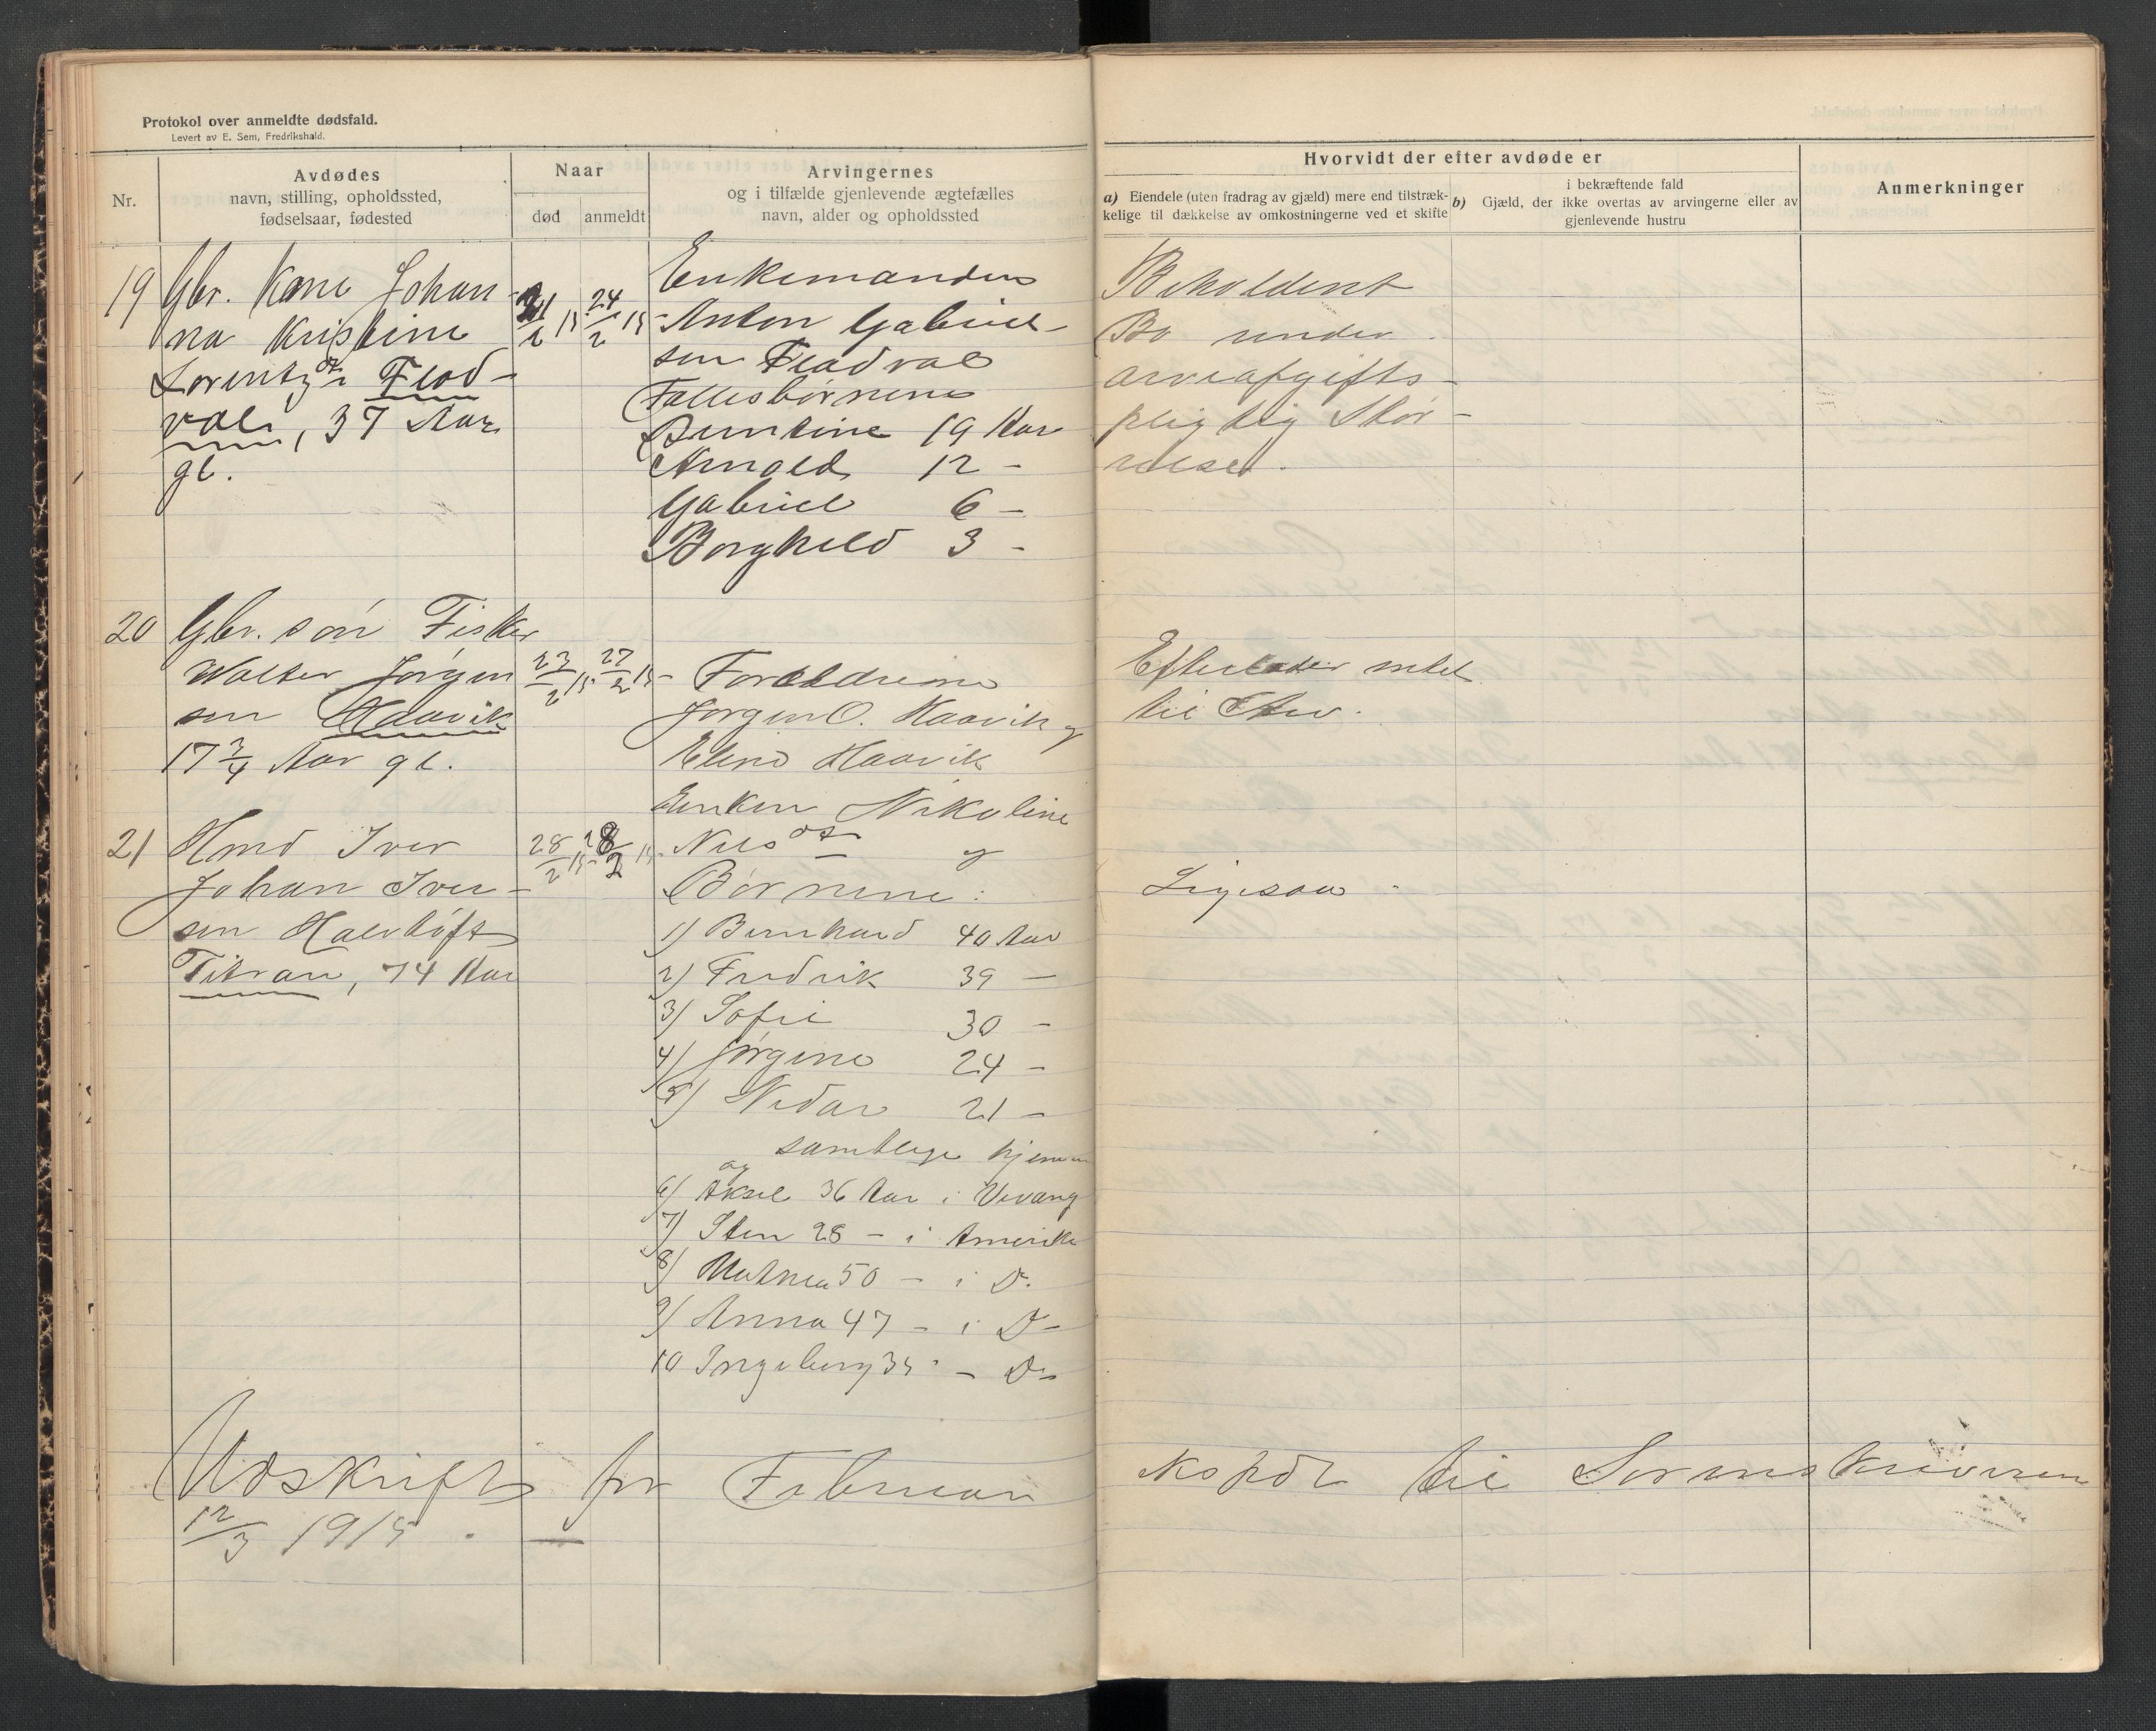 Protokol over anmeldte dødsfald.
Levert av E. Sem, Fredrikshald.
Nr.
Avdødes
navn, stilling, opholdssted,
fødselsaar, fødested
Naar
død
anmeldt
Arvingernes
og i tilfælde gjenlevende ægtefælles
navn, alder og opholdssted
Hvorvidt der efter avdøde er
a) Eiendele (uten fradrag av gjæld) mere end tilstræk-
kelige til dækkelse av omkostningerne ved et skifte
i bekræftende fald
b) Gjæld, der ikke overtas av arvingerne eller av
gjenlevende hustru
Anmerkninger
19
Gbr. Kone Johan-
na Kristine
Lorentzdtr Flad-
val, 37 Aar
gl.
21/2 15
24/2 15
Enkemanden
Anton Gabriel-
sen Fladval
Fællesbørnene
Berntine 19 Aar
Arnold 12 -
Gabriel 6 -
Borghild 3 -
Beholdent
Bo under
arveafgifts-
pligtig Stør-
relse.
20
Gbr. søn Fisker
Walter Jørgen
sen Haavik
17 3/4 Aar gl.
23/2 15
27/2 15
Forældrene
Jørgen O. Haavik og
Eline Haavik
Efterlader intet
til Arv.
21
Hmd Iver
Johan Iver-
sen Halvtøft
Titran, 74 Aar
28/2 15
28/2 15
Enken Nikoline
Nilsdtr og
Børnene:
1) Bernhard 40 Aar
2) Fredrik 39 -
3) Sofie 30 -
4) Jørgine 24 -
5) Nidar 21 -
samtlige hjemme
og
6) Aksel 36 Aar i Vevang
7) Sten 28 - i Amerika
8) 50 - i Do
9) Anna 47 - i Do
10 Ingeborg 35 - Do
Ligesaa.
Udskrift for Februar exspdt til Sorenskriveren
12/3 1915.